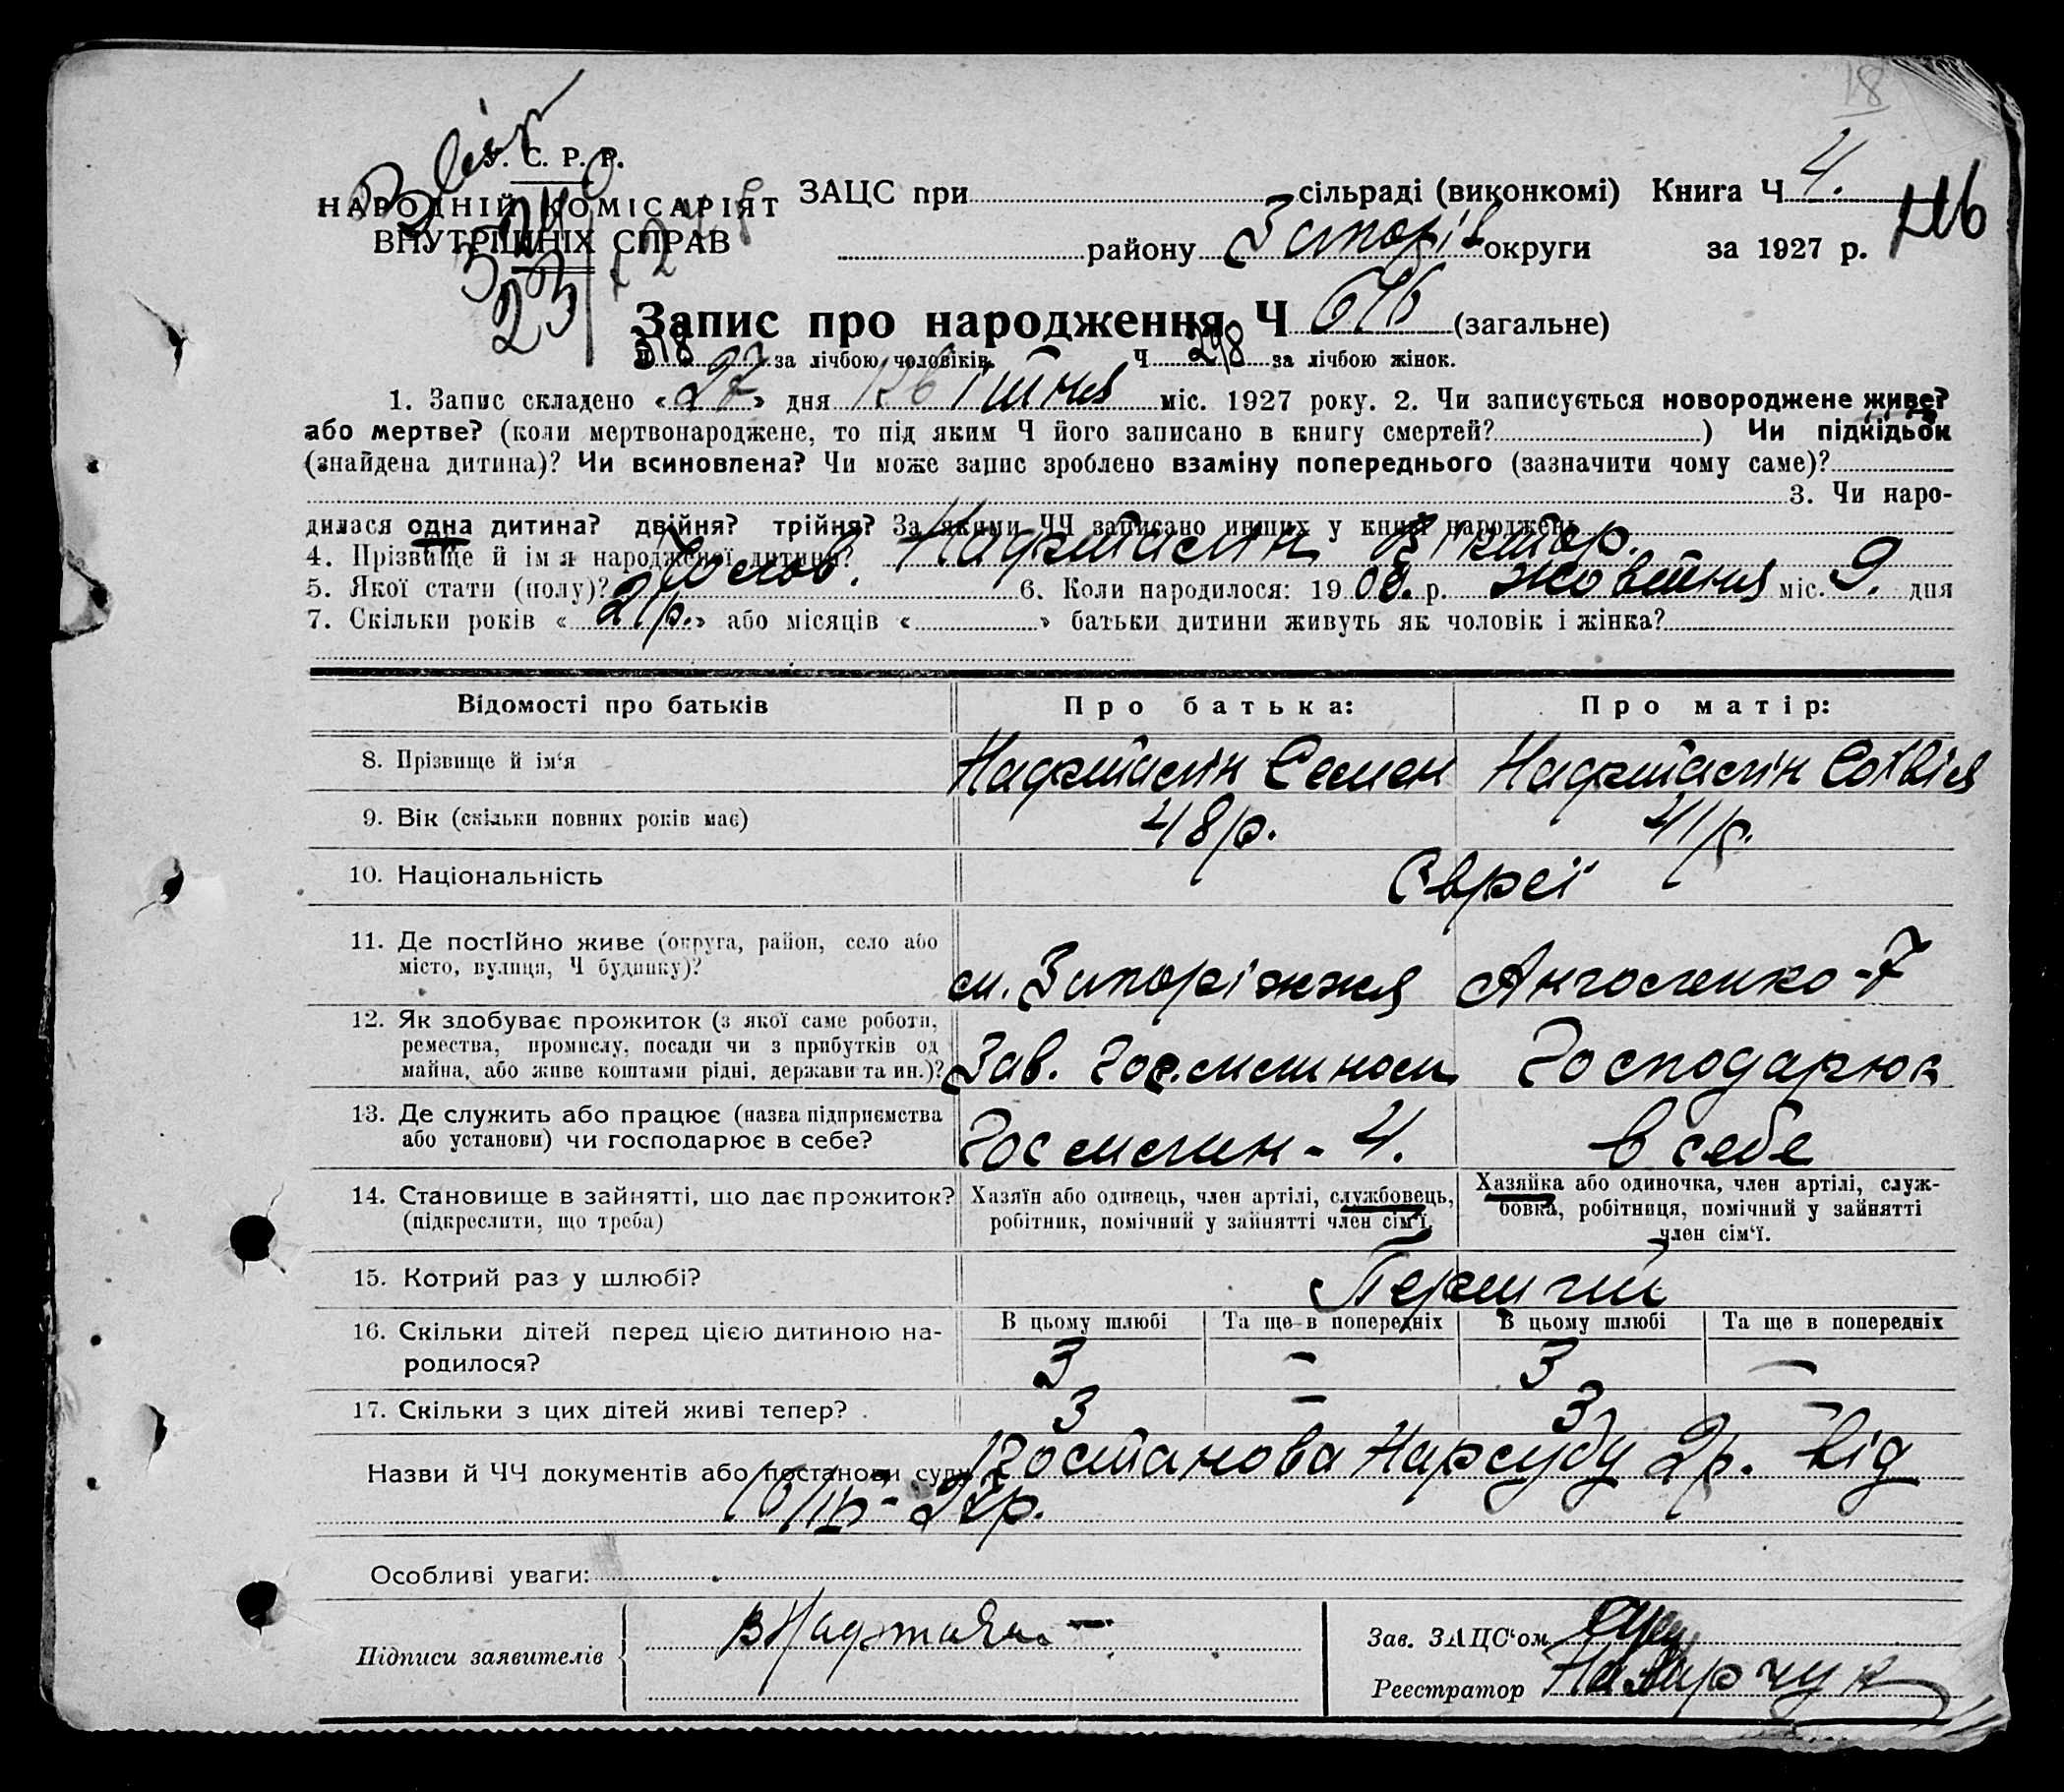 18
У. С. Р. Р.
НАРОДНІЙ КОМІСАРІЯТ
ВНУТРІШНІХ СПРАВ
ЗАЦС при сільраді (виконкомі) Книга Ч 4.
району Запоріз округи за 1927 р.
Запис про народження Ч 616 (загальне)
Ч 318 за лічбою чоловіків. Ч 298 за лічбою жінок.
1. Запис складено «27» дня квітня міс. 1927 року. 2. Чи записується новороджене живе?
або мертве? (коли мертвонароджене, то під яким Ч його записано в книгу смертей? ) Чи підкідьок
(знайдена дитина)? Чи всиновлена? Чи може запис зроблено взаміну попереднього (зазначити чому саме)?
3. Чи наро-
дилася одна дитина? двійня? трійня? За якими ЧЧ записано инших у книзі народжень
4. Прізвище й ім'я народженої дитини? Нафталін Віктор.
5. Якої стати (полу)? Чолов. 6. Коли народилося: 1908. р. жовтня міс. 9. дня
7. Скільки років «21р.» або місяців « » батьки дитини живуть як чоловік і жінка?
Відомості про батьків Про батька: Про матір:
8. Прізвище й ім'я Нафталін Семен Нафталін Софія
9. Вік (скільки повних років має) 48р. 41р.
10. Національність Євреї
11. Де постІйно живе (округа, район, село або
місто, вулиця, Ч будинку)? м. Запоріжжя Анголенко-7
12. Як здобуває прожиток (з якої саме роботи,
ремества, промислу, посади чи з прибутків од
майна, або живе коштами рідні, держави та ин.)? Зав. Гос.млином Господарює
13. Де служить або працює (назва підприємства
або установи) чи господарює в себе? Госмлин - 4. в себе
14. Становище в зайнятті, що дає прожиток?
(підкреслити, що треба)
Хазяїн або одинець, член артілі, службовець,
робітник, помічний у зайнятті член сім'ї.
Хазяйка або одиночка, член артілі, служ-
бовка, робітниця, помічний у зайнятті
член сім'ї.
15. Котрий раз у шлюбі? Перший
В цьому шлюбі Та ще в попередніх В цьому шлюбі Та ще в попередніх
16. Скільки дітей перед цією дитиною на-
родилося? 3 – 3 –
17. Скільки з цих дітей живі тепер? 3 – 3 –
Назви й ЧЧ документів або постанови суду Постанова Нарсуду 2р. від
Особливі уваги:
Підписи заявителів
Зав. ЗАЦС'ом
Реєстратор